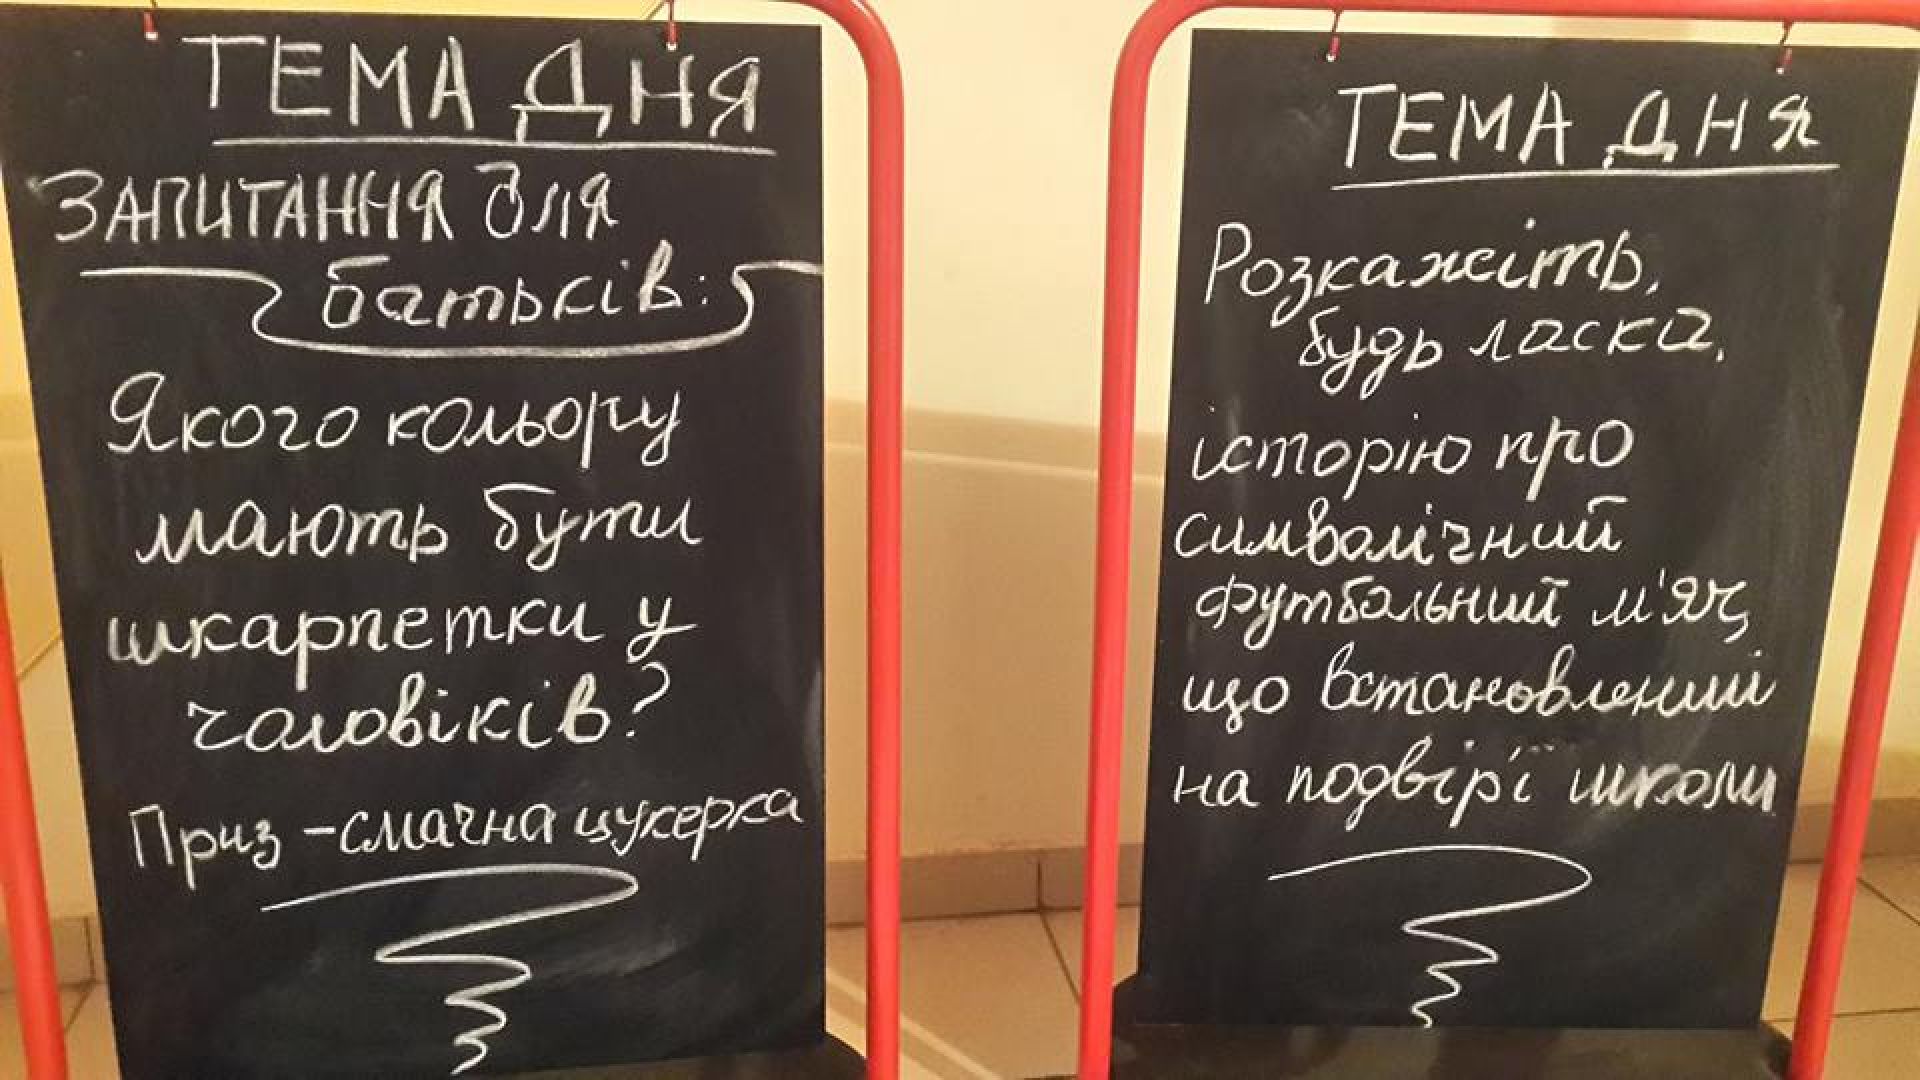 ТЕМА ДНЯ
ЗАПИТАННЯ для
батьків:
Якого кольору
мають бути
шкарпетки у
чоловіків?
Приз - смачна цукерка
ТЕМА ДНЯ
Розкажіть,
будь ласка,
історію про
символічний
футбольний м'яч,
що встановлений
на подвір'ї школи